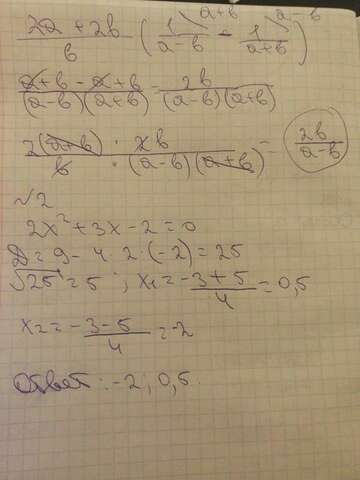 (2a + 2b)/b (1/(a-b) - 1/(a+b)) a+b a-b
(a+b - a+b)/((a-b)(a+b)) = 2b/((a-b)(a+b))
2(a+b)/b · 2b/((a-b)(a+b)) = 2b/(a-b)
√2
2x²+3x-2=0
D=9-4·2·(-2)=25
√25=5; x₁=(-3+5)/4=0,5
x₂=(-3-5)/4=-2
Ответ: -2; 0,5.